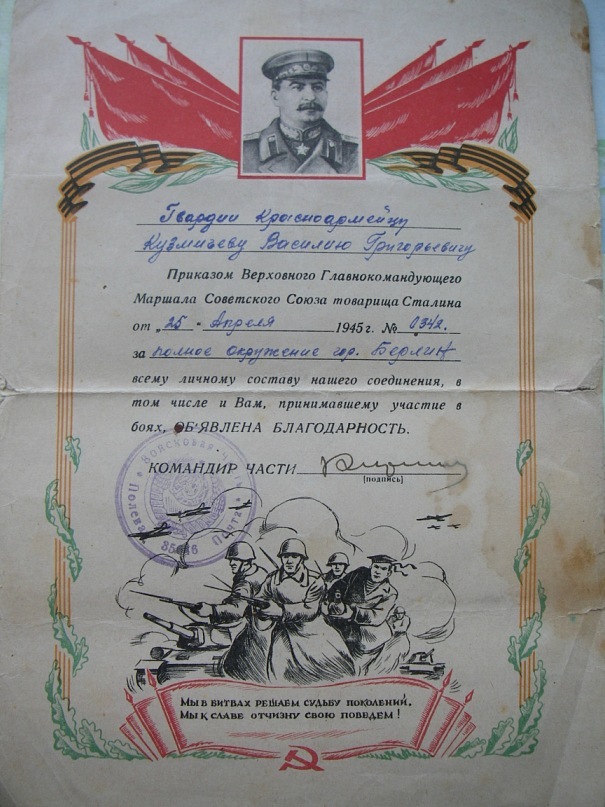 Гвардии Красноармейцу
Кузмичеву Василию Григорьевичу
Приказом Верховного Главнокомандующего
Маршала Советского Союза товарища Сталина
от „25" Апреля 1945 г. № 0342.
за полное окружение гор. Берлин
всему личному составу нашего соединения, в
том числе и Вам, принимавшему участие в
боях, ОБ'ЯВЛЕНА БЛАГОДАРНОСТЬ.
КОМАНДИР ЧАСТИ
(подпись)
Войсковая
Полевая Почта
МЫ В БИТВАХ РЕШАЕМ СУДЬБУ ПОКОЛЕНИЙ,
МЫ К СЛАВЕ ОТЧИЗНУ СВОЮ ПОВЕДЕМ!